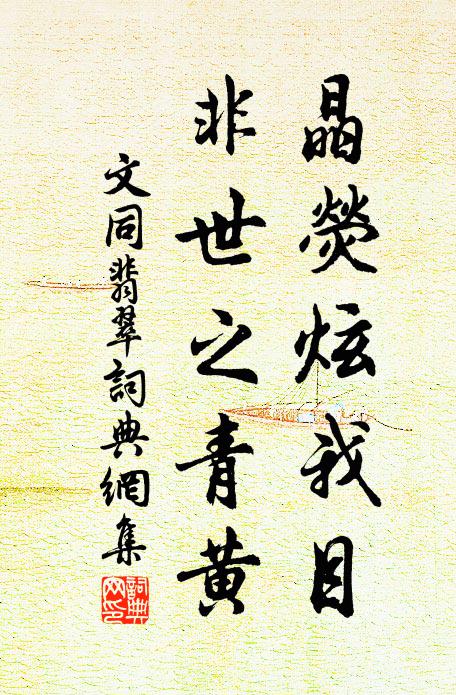 晶熒炫我目
非世之青黄
文同翡翠詞典網集
詞典網印